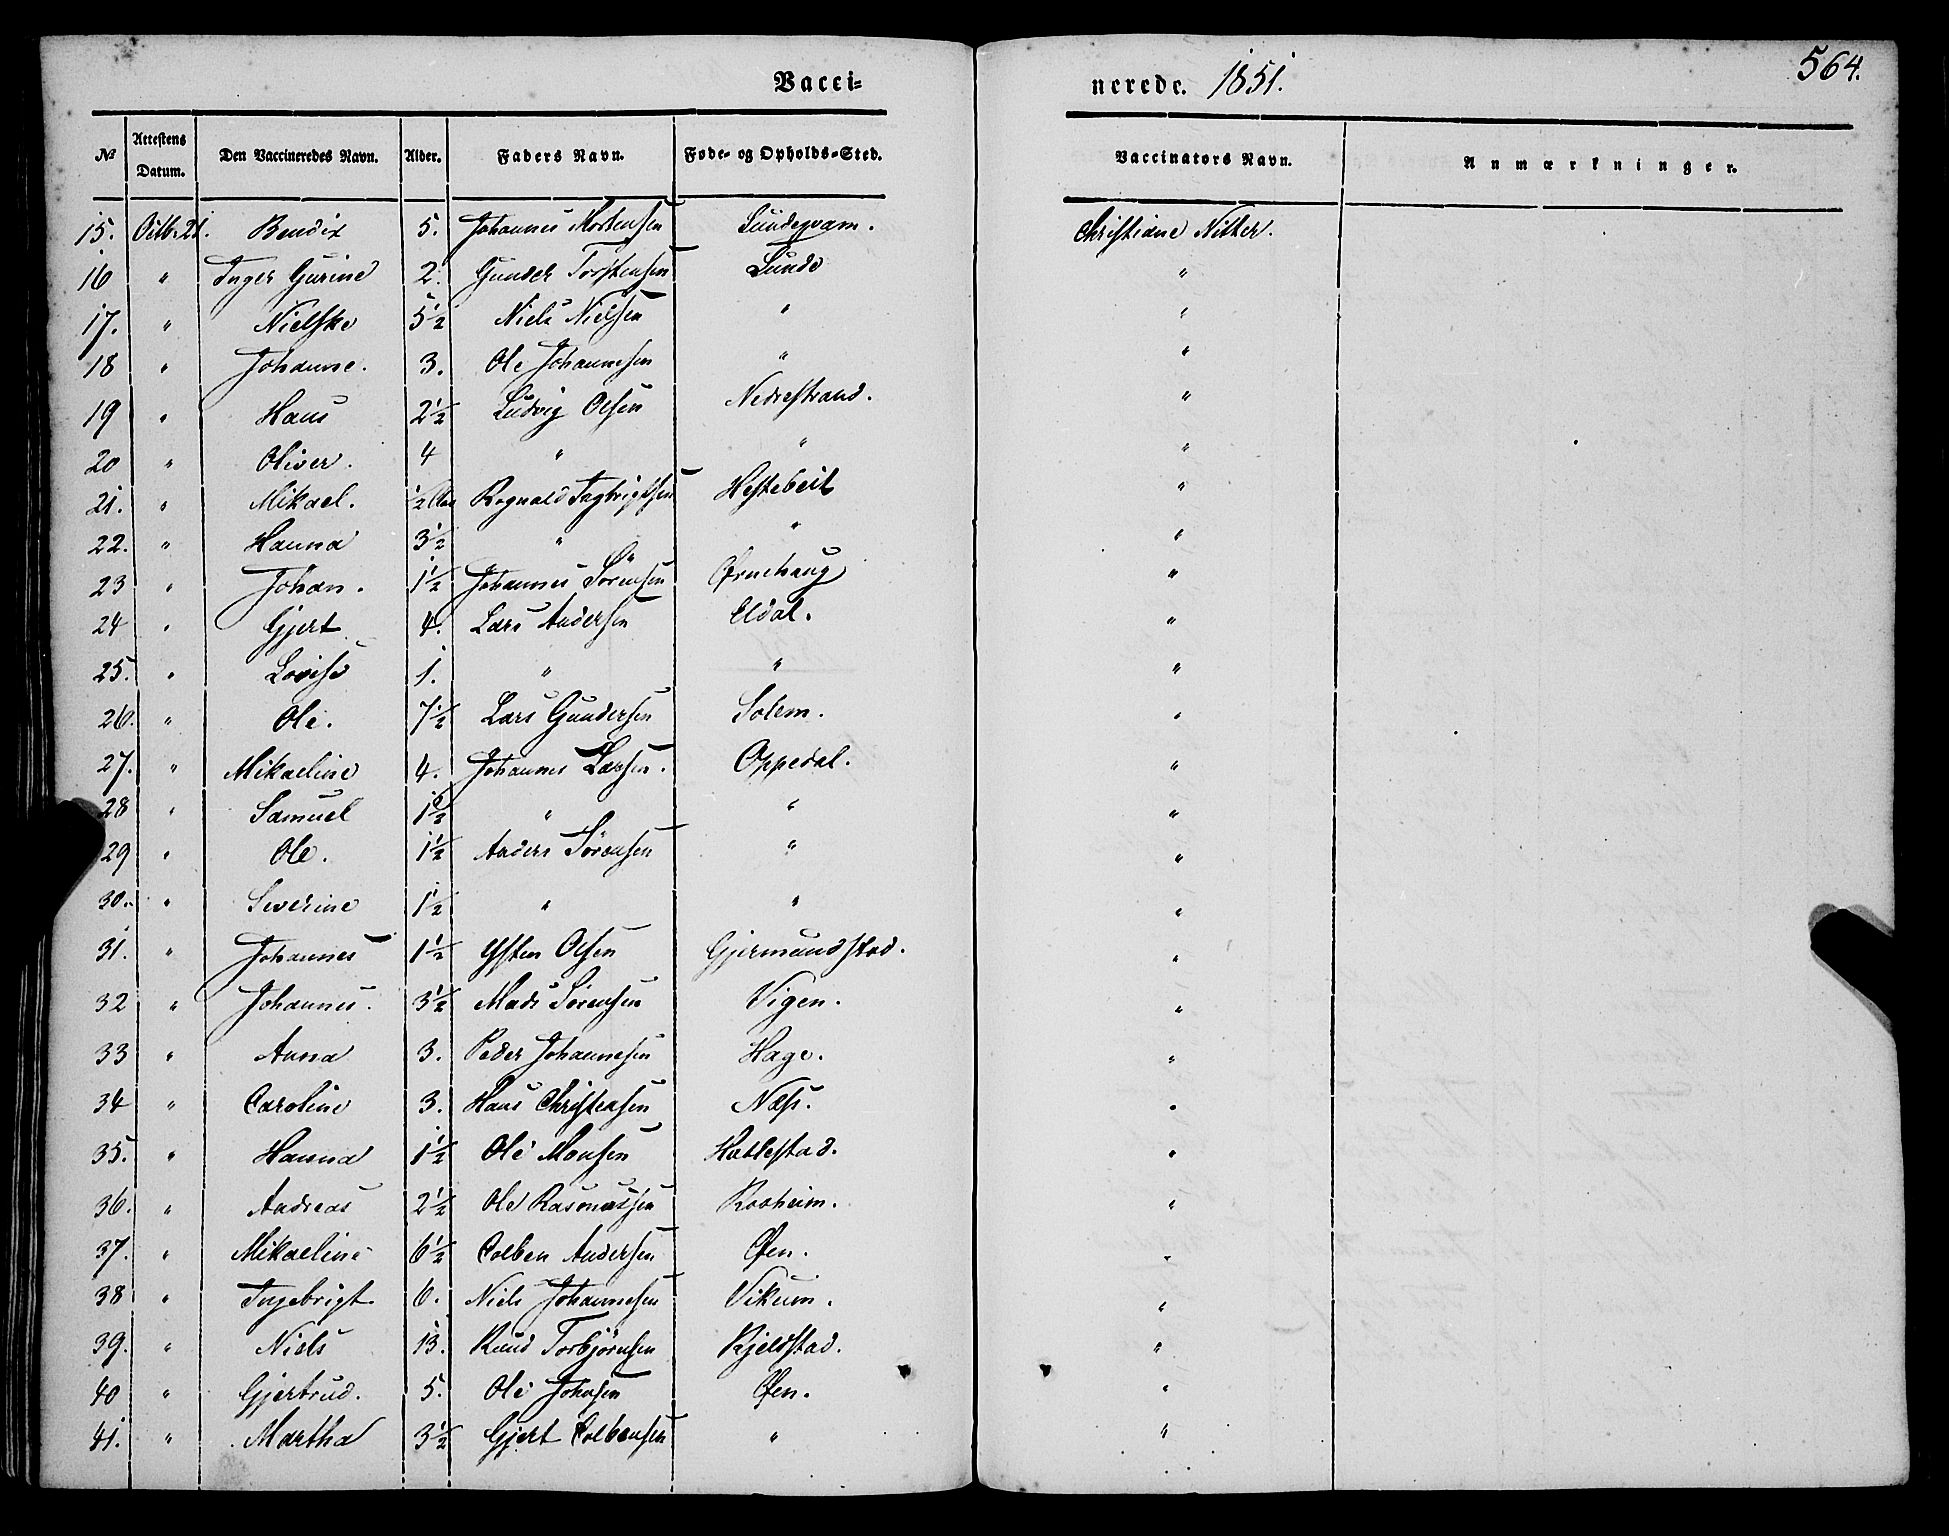 564.
Vacci- nerede. 1851.
№ Attestens Datum. Den Vaccineredes Navn. Alder. Faders Navn. Føde- og Opholds-Sted. Vaccinators Navn. Anmærkninger.
15. Octb. 21. Bendix 5. Johannes Mortensen Sundegvam. Christiane Nitter.
16 " Inger Gurine 2. Gunder Torstensen Sunde "
17. " Nielske 5½ Niels Nielsen " "
18 " Johanne. 3. Ole Johannesen " "
19 " Hans 2½ Ludvig Olsen Nedrestrand. "
20 " Oliver. 4 " " "
21. " Mikael. ½ Rognald Ingbrigtsen "
22. " Hanna 3½ " " "
23 " Johan. 1½ Johannes Sörensen Ørnehaug "
24 " Gjert 4. Lars Andersen Eldal. "
25. " Lovise 1. " " "
26. " Ole. 7½ Lars Gundersen Solem. "
27. " Mikaeline 4. Johannes Larsen. Oppedal. "
28 " Samuel 1½ " " "
29 " Ole. 1½ Anders Sörensen " "
30. " Severine 1½ " " "
31. " Johannes 1½ Ysten Olsen Gjermundstad. "
32 " Johannes. 3½ Mads Sörensen Vigen. "
33 " Anna 3. Peder Johannesen Hage. "
34 " Caroline 3. Hans Christensen Næss. "
35. " Hanna 1½ Ole Monsen Hatlestad. "
36. " Andreas 2½ Ole Rasmussen Rooheim. "
37. " Mikaeline 6½ Colben Andersen Øen. "
38 " Ingebrigt 6. Niels Johannesen Vikum. "
39. " Niels 13. Knud Torbjörnsen Kjelstad. "
40 " Gjertrud. 5. Ole Johnsen Øen. "
41. " Martha 3½ Gjert Colbensen " "